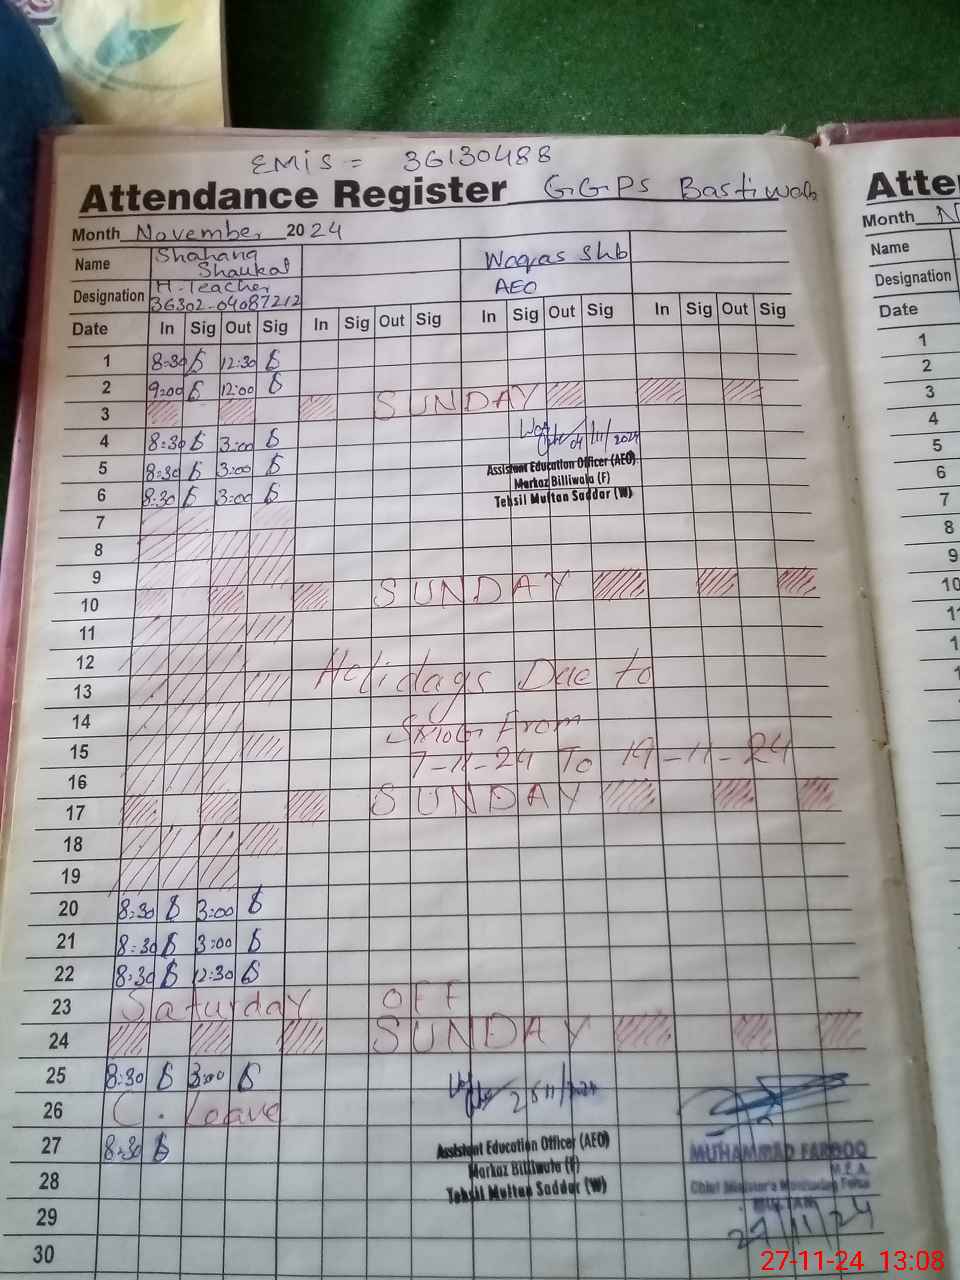 EMIS = 36130488
Attendance Register GGPS Bastiwala
Month November 2024
Name Shahana Shaukat Waqas Shb
Designation H-Teacher 36302-04087212 AEO
Date In Sig Out Sig In Sig Out Sig In Sig Out Sig In Sig Out Sig
1 8:30 12:30
2 9:00 12:00
3 SUNDAY
4 8:30 3:00 04/11/2024
5 8:30 3:00 Assistant Education Officer (AEO)
Markaz Billiwala (F)
6 8:30 3:00 Tehsil Multan Saddar (W)
7
8
9
10 SUNDAY
11
12 Holidays Due to
13
14 SMOG From
15 7-11-24 To 19-11-24
16
17 SUNDAY
18
19
20 8:30 3:00
21 8:30 3:00
22 8:30 12:30
23 Saturday OFF
24 SUNDAY
25 8:30 3:00
26 C. Leave
27 8:30 Assistant Education Officer (AEO) MUHAMMAD FAROOQ
Markaz Billiwala (F) M.E.A.
28 Tehsil Multan Saddar (W) Chief Minister's Monitoring Force
MULTAN
29 27/11/24
30
27-11-24 13:08
Month N
Name
Designation
Date
1
2
3
4
5
6
7
8
9
10